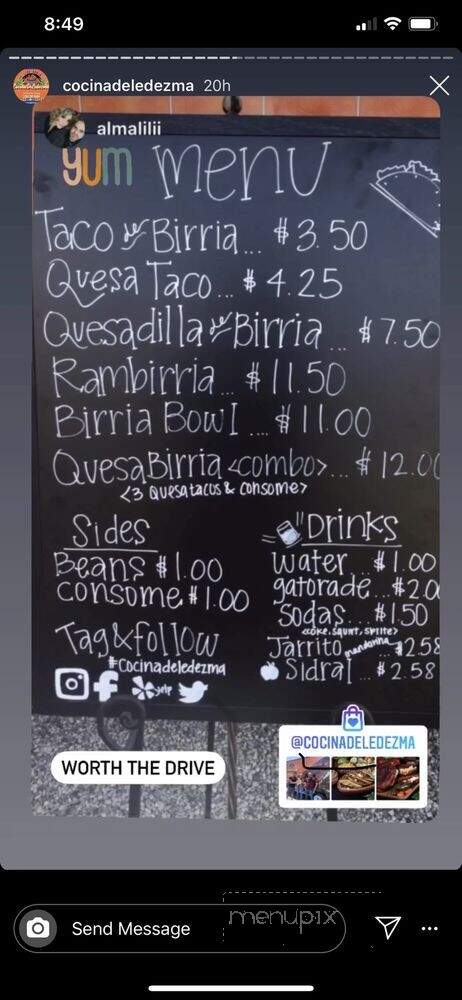 8:49
cocinadeledezma 20h
almalilii
yum menu
Taco de Birria... $3.50
Quesa Taco... $4.25
Quesadilla de Birria... $7.50
Rambirria... $11.50
Birria Bowl.... $11.00
QuesaBirria <combo>... $12.00
<3 Quesatacos & consome>
Sides
Beans $1.00
consome $1.00
Drinks
water...$1.00
gatorade...$2.0
Sodas...$1.50
<coke, squirt, sprite>
Jarrito mandarina $2.58
Sidral...$2.58
Tag&follow
#Cocinadeledezma
yelp
WORTH THE DRIVE
@COCINADELEDEZMA
Send Message
menupix